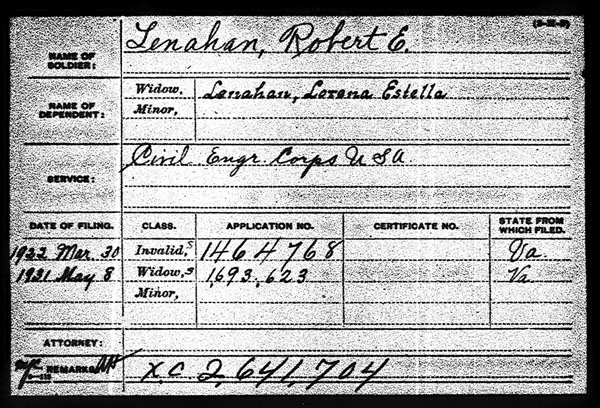 (3-III-3)
NAME OF SOLDIER: Lenahan, Robert E.
NAME OF DEPENDENT: Widow, Lenahan, Lorena Estella
Minor,
SERVICE: Civil Engr. Corps U S A
DATE OF FILING. CLASS. APPLICATION NO. CERTIFICATE NO. STATE FROM WHICH FILED.
1922 Mar. 30 Invalid, S 1464768 Va.
1931 May 8 Widow, S 1,693,623 Va
Minor,
ATTORNEY:
REMARKS: X.C. 2,641,704